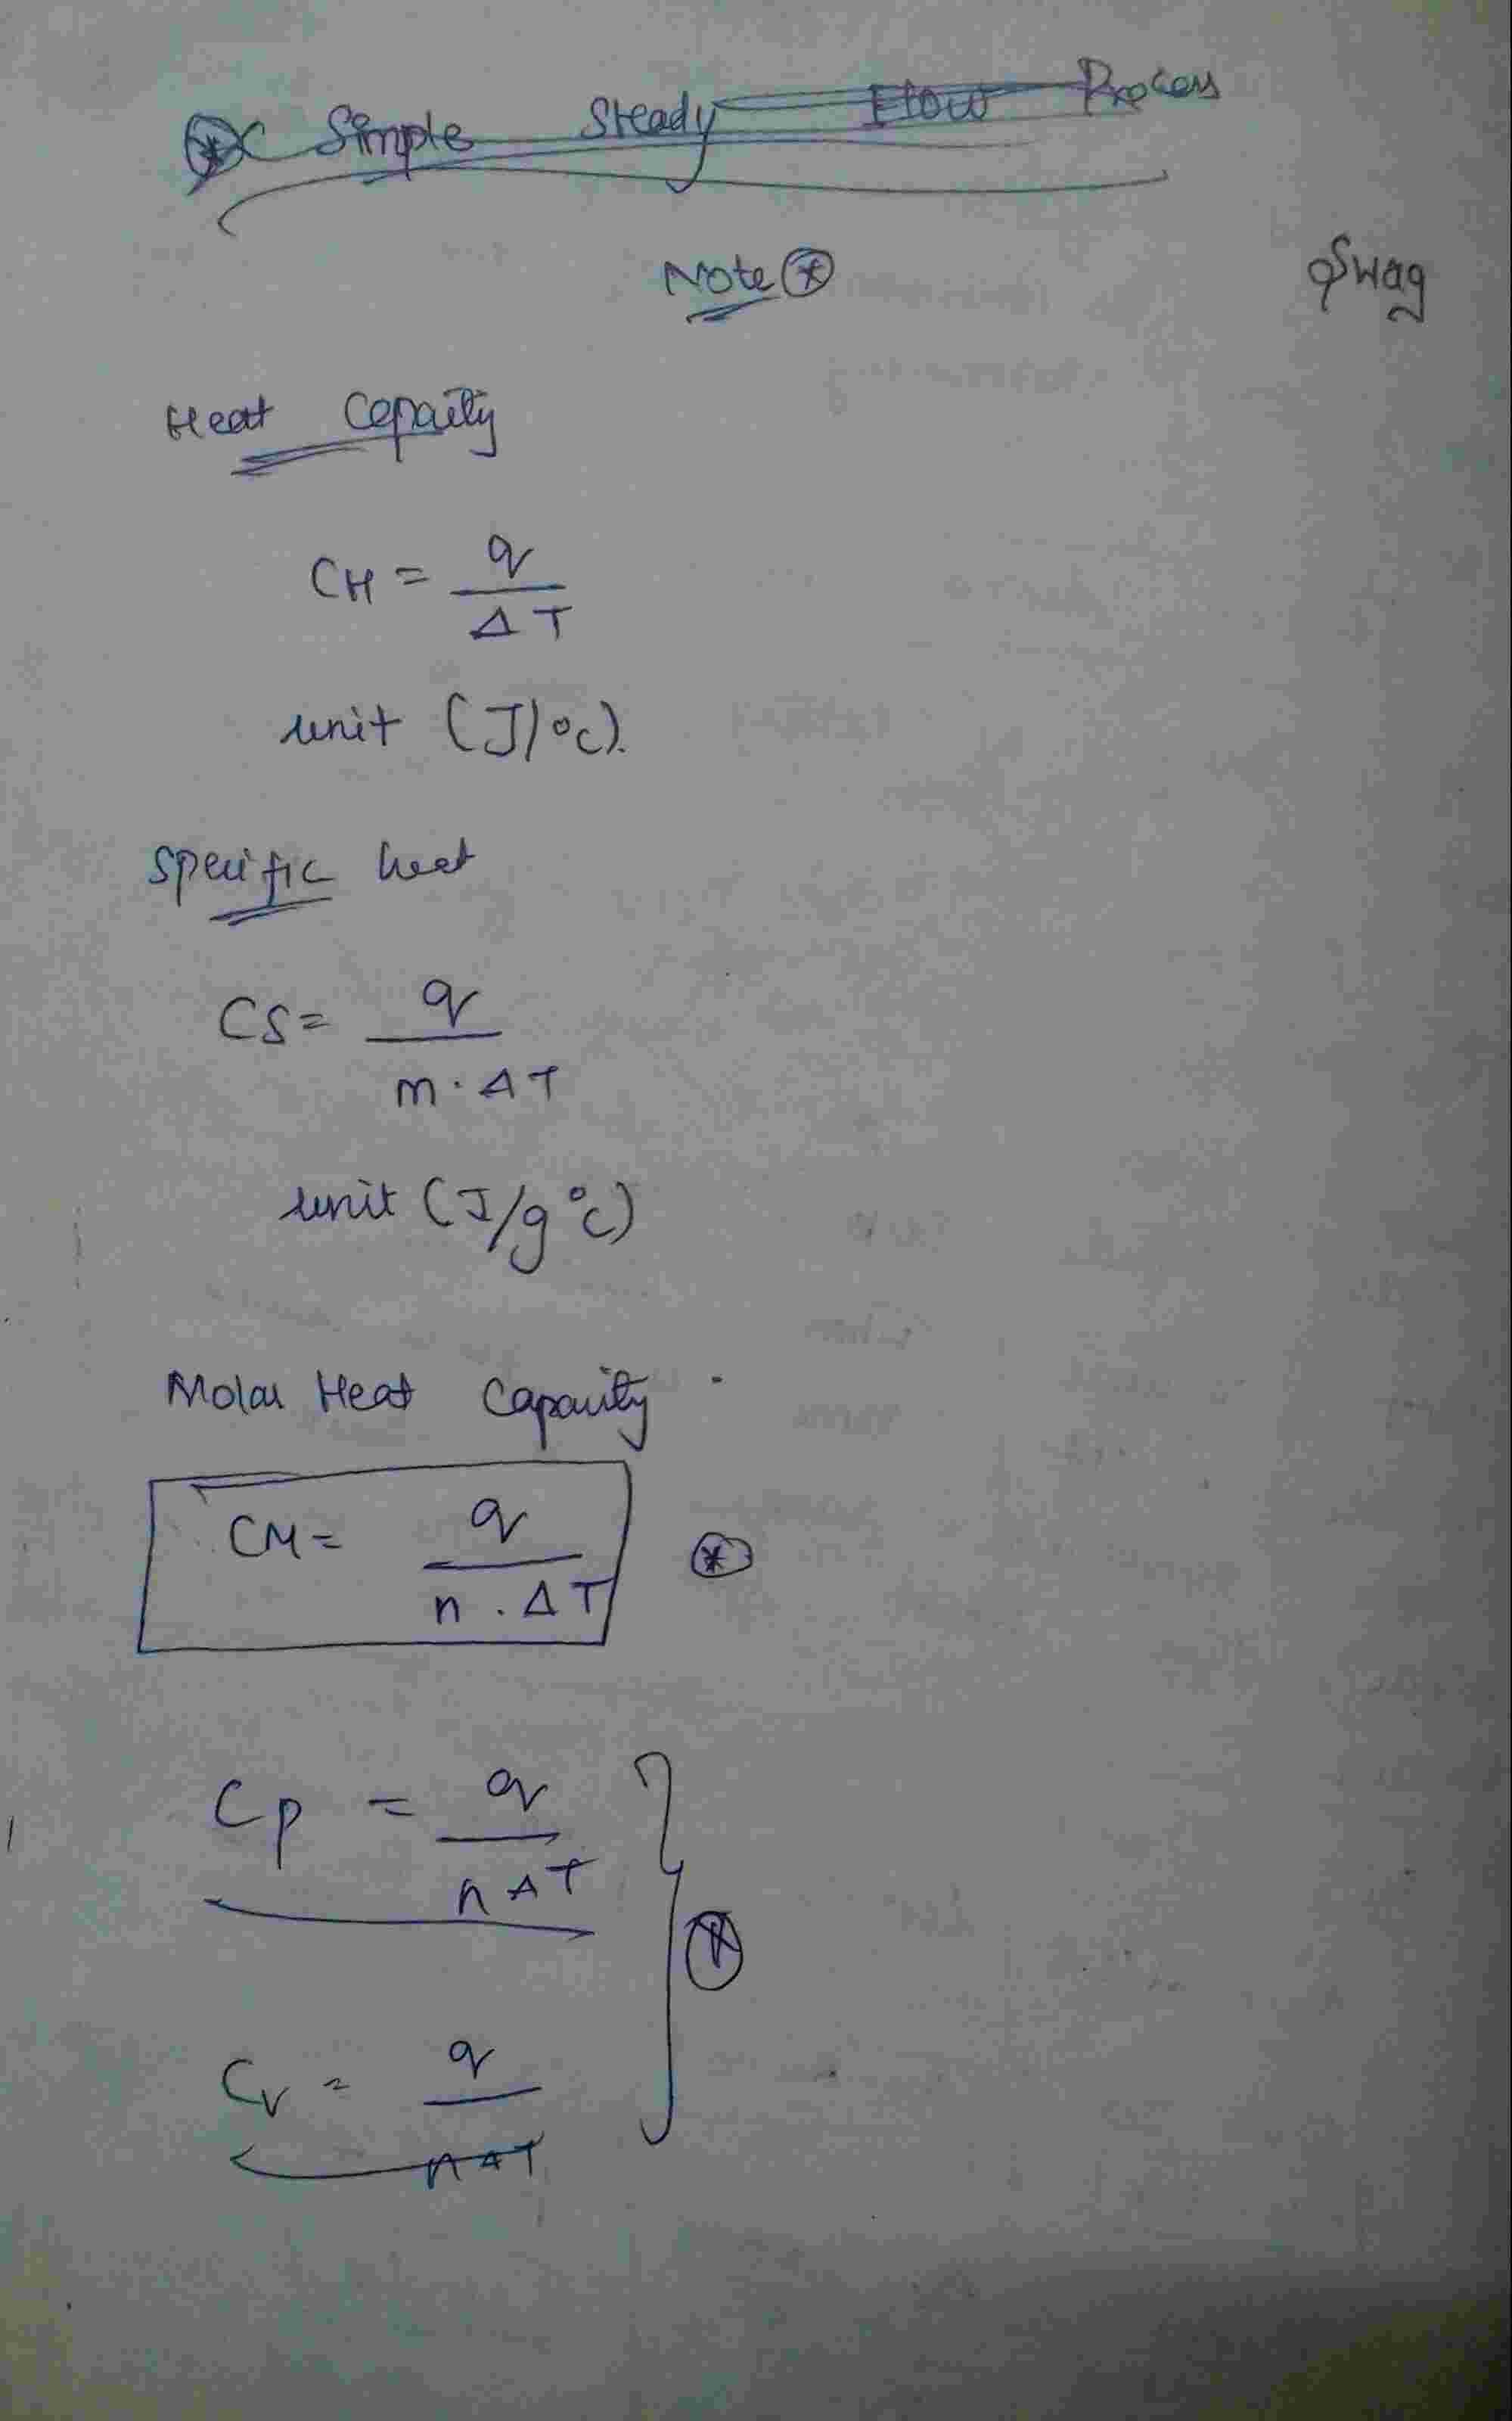 Simple Steady Flow Process
Note
Swag
Heat Cepacity
CH = q
ΔT
unit (J/°C).
Specific heat
CS = q
m · ΔT
unit (J/g°C)
Molar Heat Capacity
CM = q
n . ΔT
Cp = q
nΔT
Cv = q
nΔT